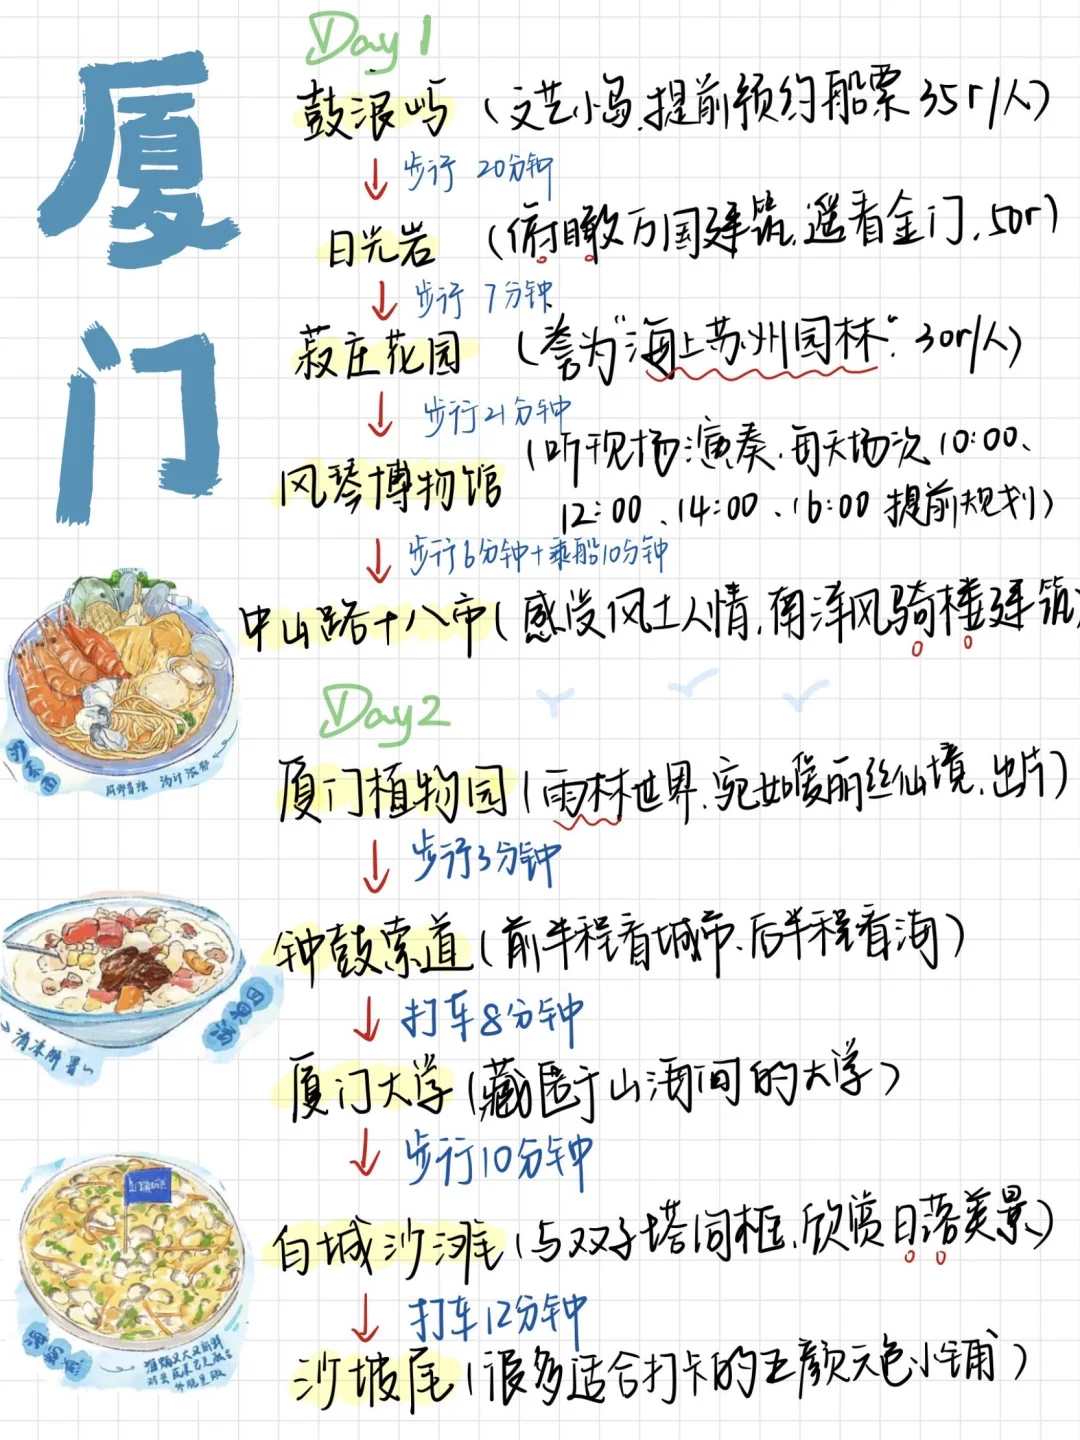 厦门
Day1
鼓浪屿（文艺小岛,提前预约船票35r/人）
步行 20分钟
日光岩（俯瞰万国建筑,遥看金门,50r）
步行 7分钟
菽庄花园（誉为“海上苏州园林”. 30r/人）
步行21分钟
风琴博物馆（听现场演奏,每天场次10:00、
12:00、14:00、16:00 提前规划）
步行6分钟+乘船10分钟
中山路十八市（感受风土人情,南洋风骑楼建筑）
沙茶面
汤汁浓郁
Day2
厦门植物园（雨林世界,宛如爱丽丝仙境,出片）
步行3分钟
钟鼓索道（前半程看城市、后半程看海）
打车8分钟
四果汤
清凉解暑
厦门大学（藏匿于山海间的大学）
步行10分钟
白城沙滩（与双子塔同框,欣赏日落美景）
打车12分钟
海蛎煎
沙坡尾（很多适合打卡的五颜六色小铺）